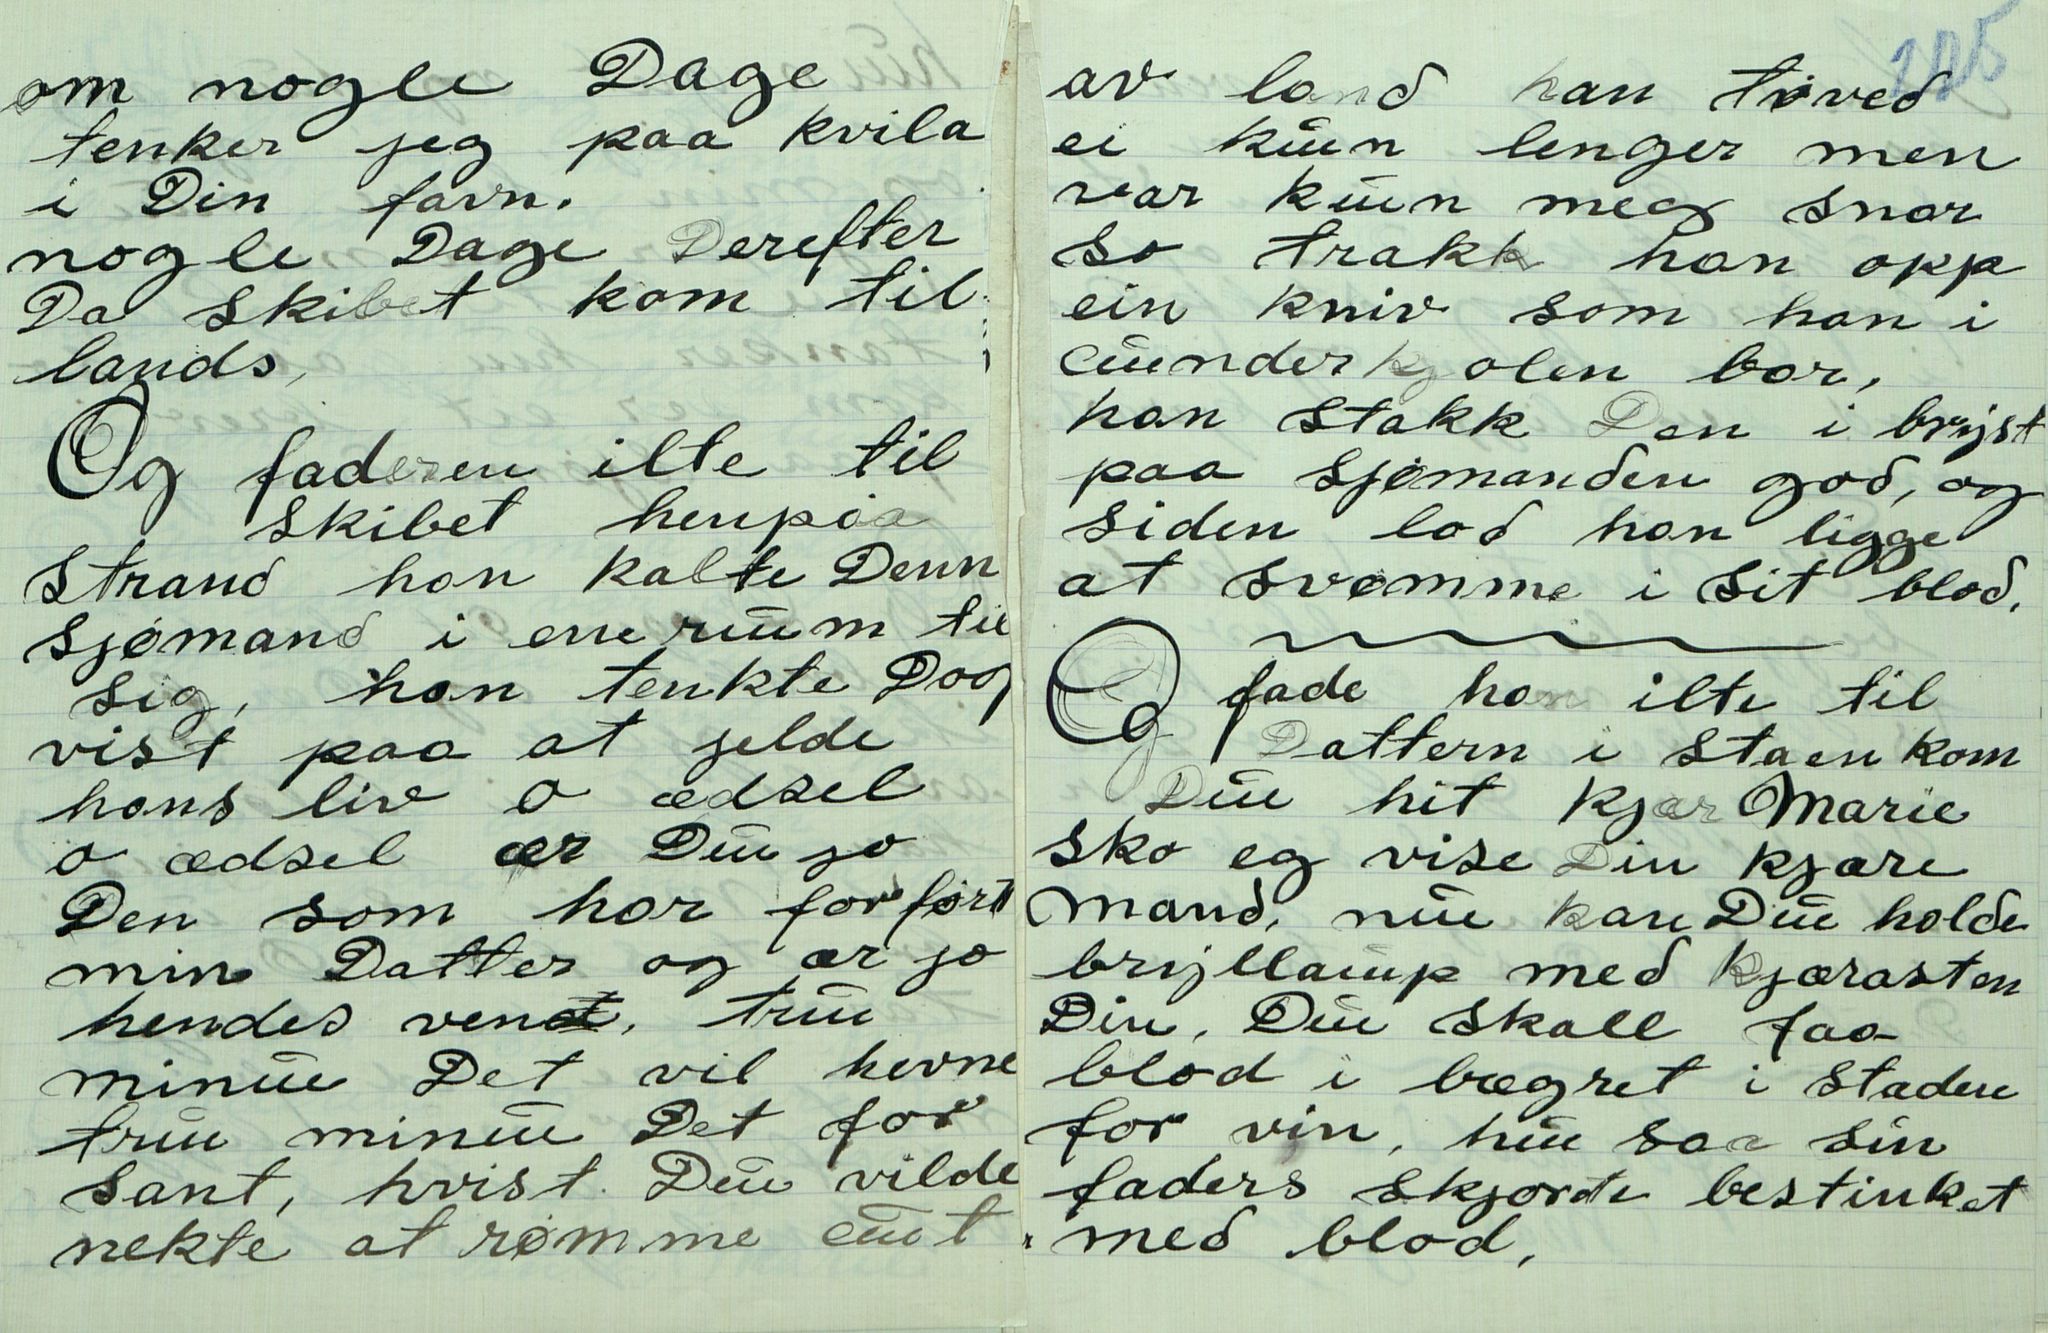 om nogle Dage
tenker jeg paa kvila
i Din favn.
nogle Dage Derefter
Da skibet kom til
lands,
Og faderen ilte til
skibet henpaa
strand han kalte Denn
sjømand i enerüm til
sig, han tenkte Dog
vist paa at jelde
hans liv o ædsel
o ædsel ær Dü jo
Den som har forført
min Datter og ær jo
hendes ven, trü
minü Det vil hevne
trü minü Det for
sant, hvist Dü vilde
nekte at rømme üt
av land han tøved
ei kün lenger men
var kün meg snar
so trakk han opp
ein kniv som han i
ünderkjolen bar,
han stakk Den i bryst
paa sjømanden god, og
siden lod han ligge
at svømme i sit blod.
Og fade han ilte til
Dattern i staen kom
Dü hit kjær Marie
sko eg vise Din kjære
mand, nü kan Dü holde
bryllaüp med kjærasten
Din, Dü skall faa
blod i bægret i staden
for vin, hü saa sin
faders skjorte bestinket
med blod,